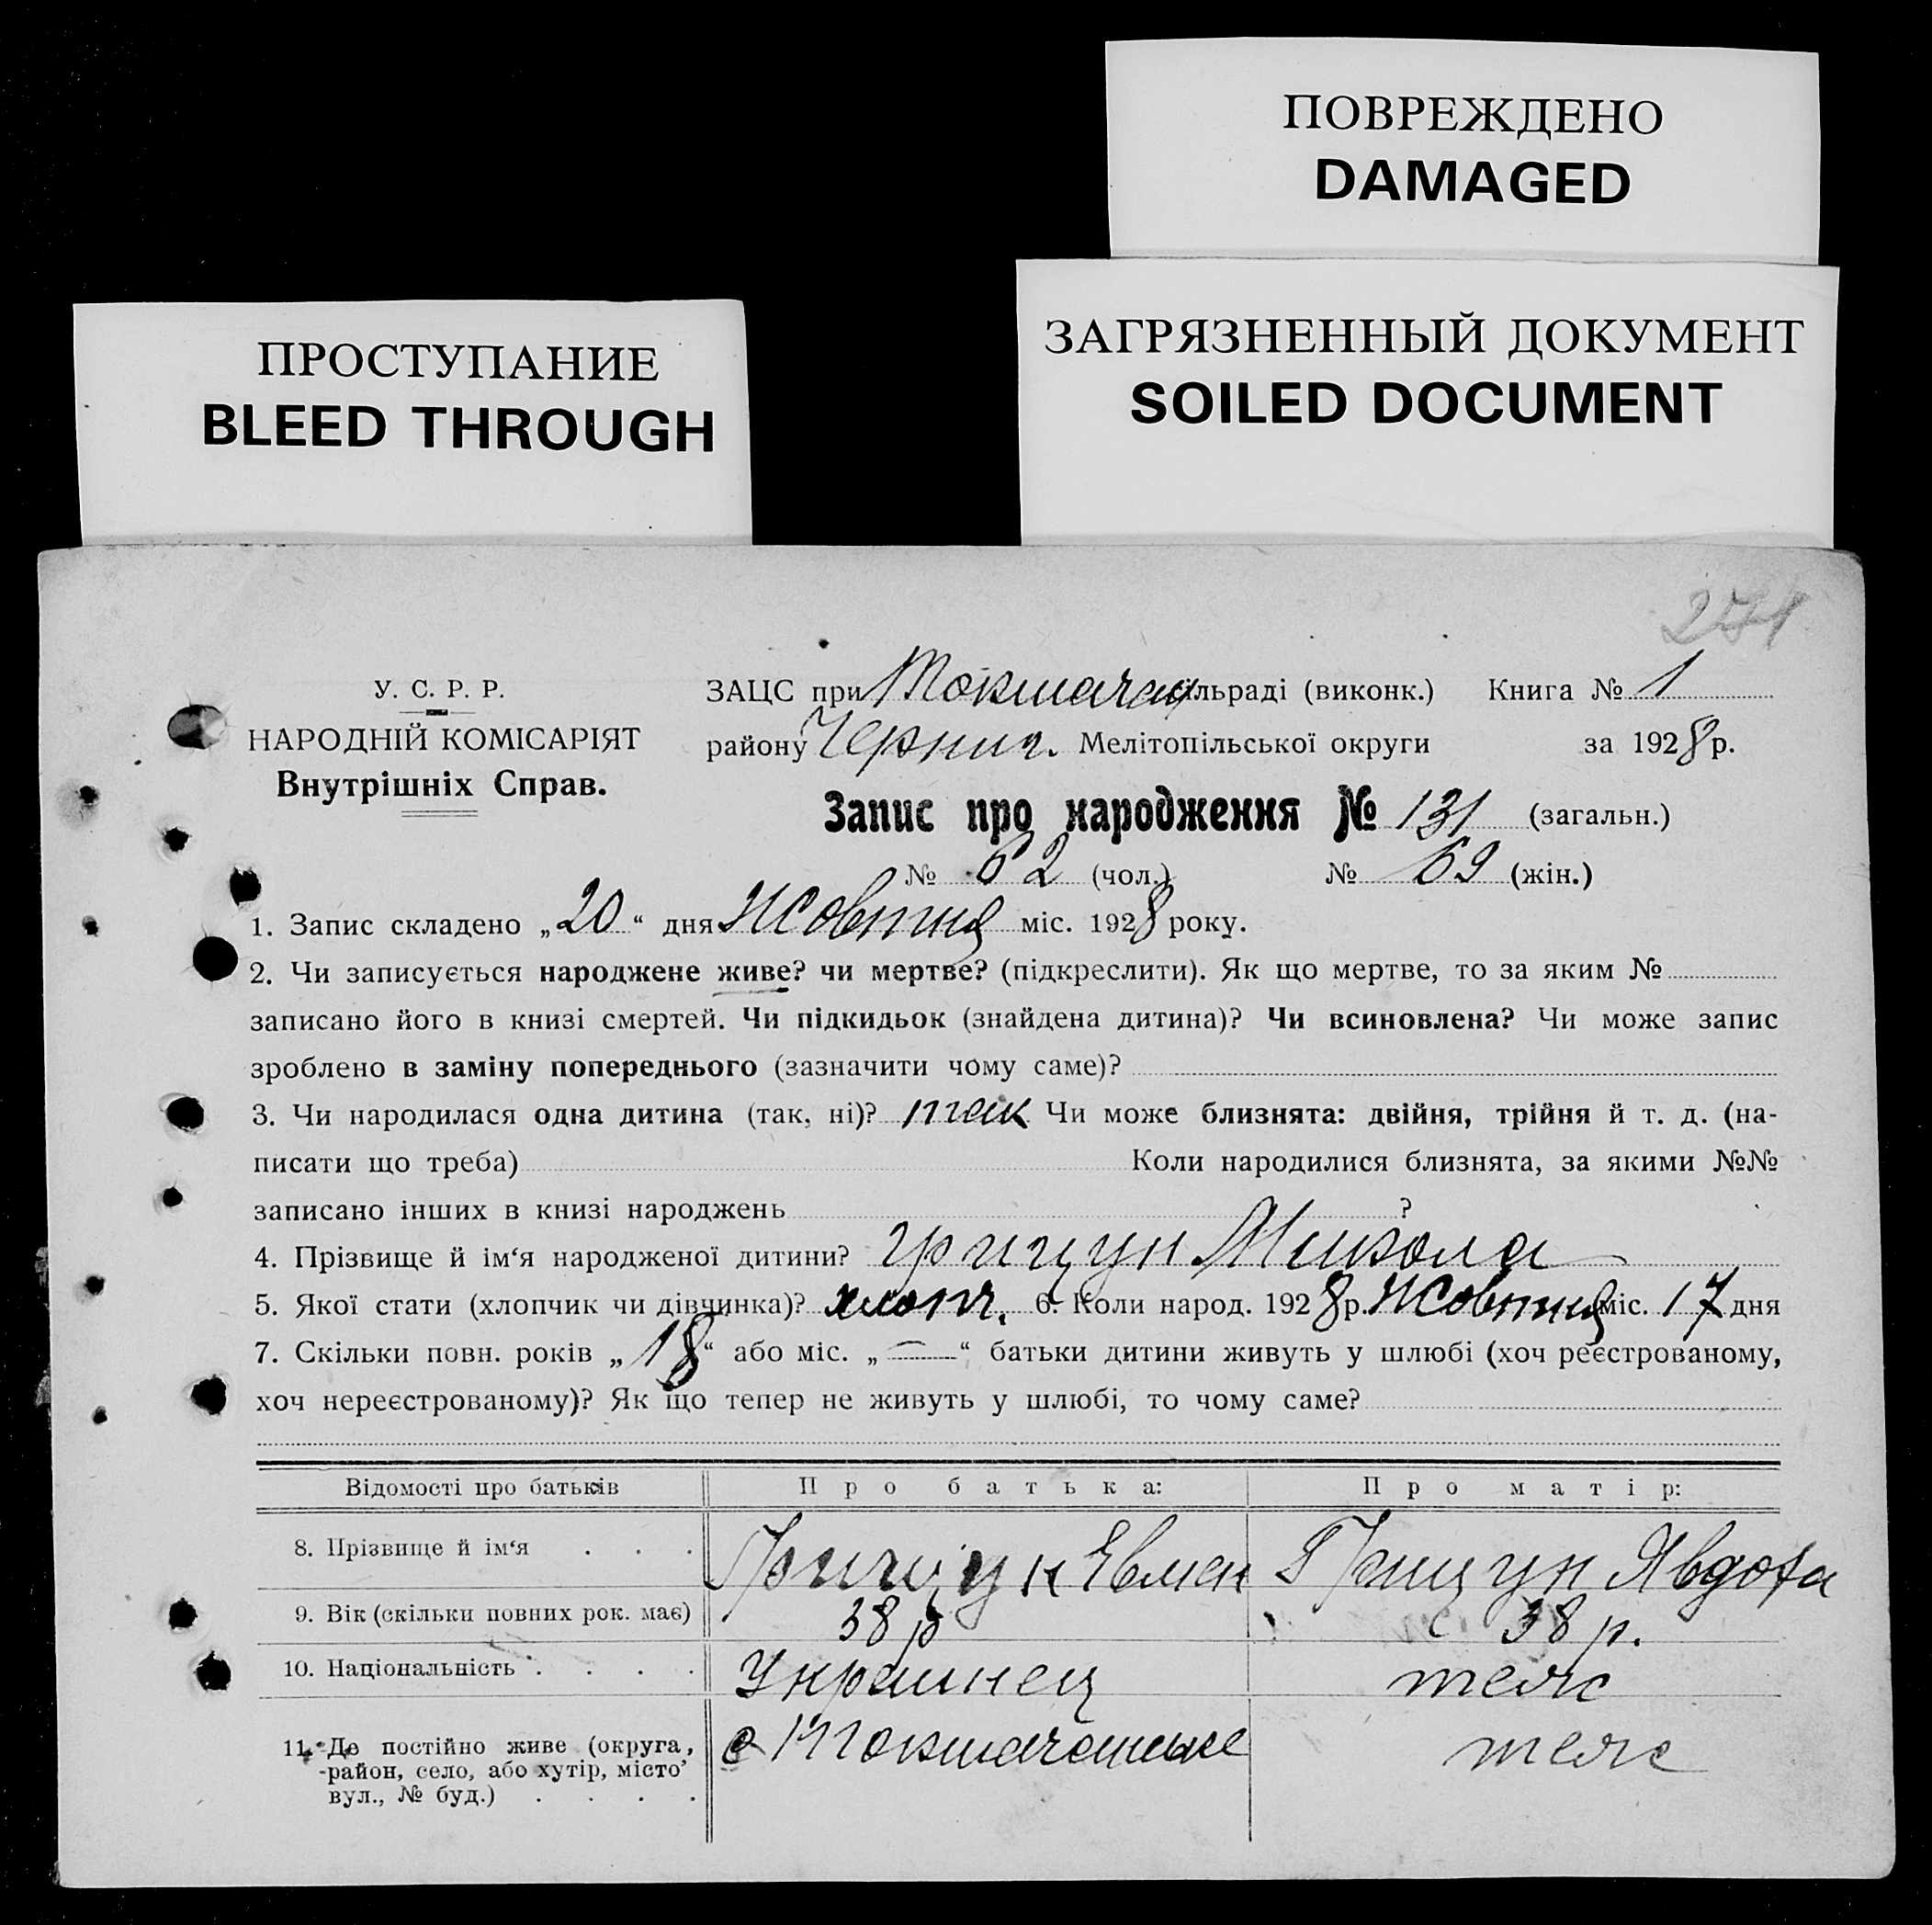 ПОВРЕЖДЕНО
DAMAGED
ПРОСТУПАНИЕ
BLEED THROUGH
ЗАГРЯЗНЕННЫЙ ДОКУМЕНТ
SOILED DOCUMENT
У. С. Р. Р.
НАРОДНІЙ КОМІСАРІЯТ
Внутрішніх Справ.
ЗАЦС при Токмачан сільраді (виконк.) Книга № 1
району Черниг. Мелітопільської округи за 1928 р.
Запис про народження № 131 (загальн.)
№ 62 (чол.) № 69 (жін.)
1. Запис складено „20“ дня Жовтня міс. 1928 року.
2. Чи записується народжене живе? чи мертве? (підкреслити). Як що мертве, то за яким №
записано його в книзі смертей. Чи підкидьок (знайдена дитина)? Чи всиновлена? Чи може запис
зроблено в заміну попереднього (зазначити чому саме)?
3. Чи народилася одна дитина (так, ні)? так Чи може близнята: двійня, трійня й т. д. (на-
писати що треба) Коли народилися близнята, за якими №№
записано інших в книзі народжень ?
4. Прізвище й ім‘я народженої дитини? Грицун Микола
5. Якої стати (хлопчик чи дівчинка)? хлопч. 6. Коли народ. 1928 р. Жовтня міс. 17 дня
7. Скільки повн. років „18“ або міс. „—“ батьки дитини живуть у шлюбі (хоч реєстрованому,
хоч нереєстрованому)? Як що тепер не живуть у шлюбі, то чому саме?
Відомості про батьків Про батька: Про матір:
8. Прізвище й ім‘я . . . Грицун Явдоха
9. Вік (скільки повних рок. має) 38 р 38 р.
10. Національність . . . . Украинец теж
11. Де постійно живе (округа, с Токмачанське теж
район, село, або хутір, місто
вул., № буд.) . . . .